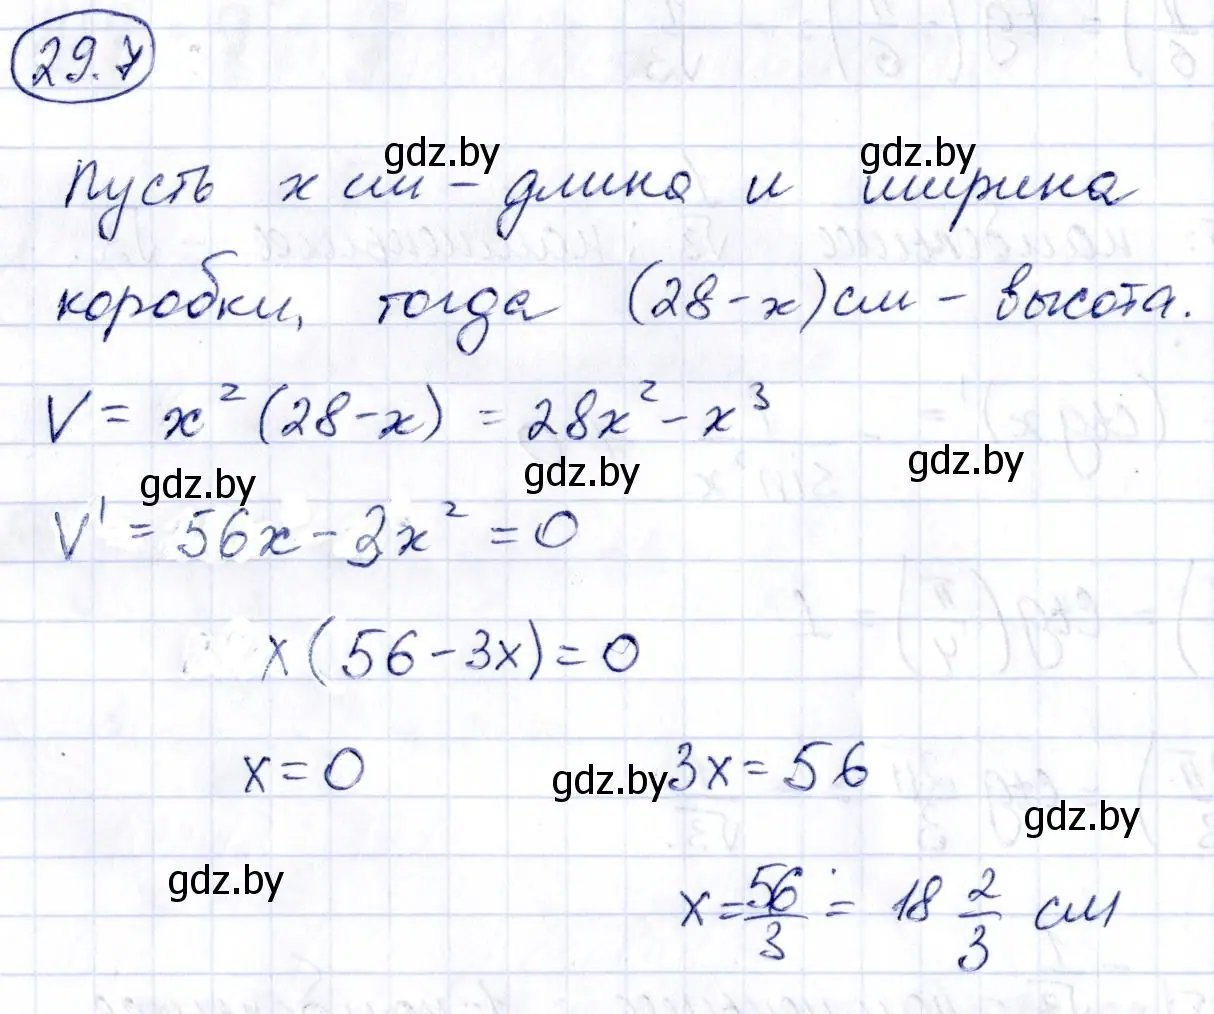 29.7
gdz.by gdz.by
Пусть x см – длина и ширина
коробки, тогда (28-x) см – высота.
V = x² (28-x) = 28x² - x³
gdz.by gdz.by gdz.by
V' = 56x - 3x² = 0
x(56-3x) = 0
x = 0 gdz.by 3x = 56
gdz.by
gdz.by
x = 56/3 = 18 2/3 см